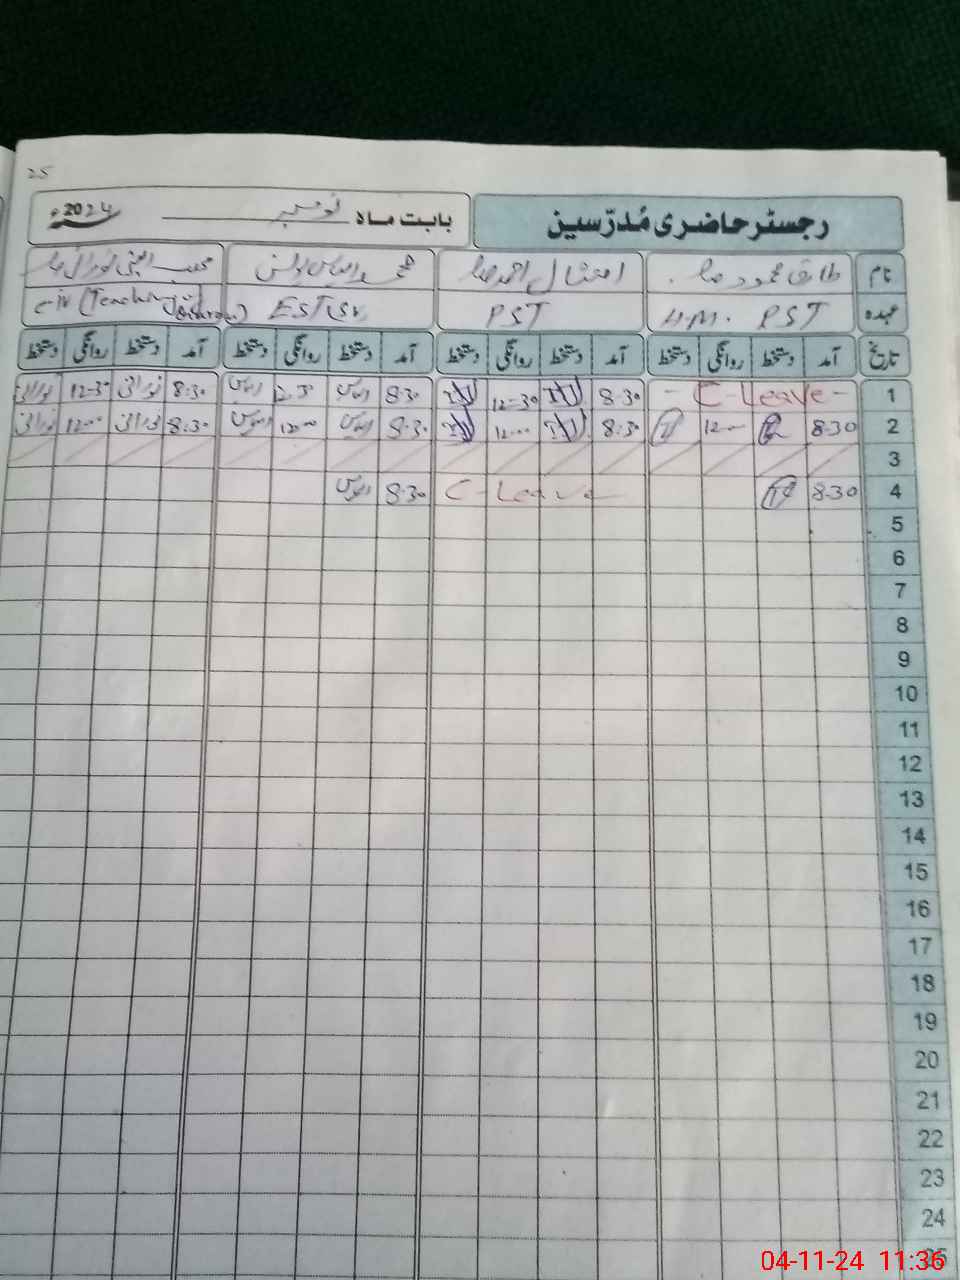 25
رجسٹر حاضری مُدرّسین
بابت ماہ نومبر 2024ء
نام طارق محمود صاحب امتثال احمد صاحب محمد الیاس
عہدہ H.M. PST PST EST
تاریخ آمد دستخط روانگی دستخط آمد دستخط روانگی دستخط آمد دستخط روانگی دستخط آمد دستخط روانگی دستخط
1 - C-Leave - 8.30 12-30 8.30 8:30 نورانی 12-30 نورانی
2 8.30 12-00 8:30 12-00 8:30 الیاس 12-00 8:30 نورانی 12-00 نورانی
3
4 8.30 C-Leave 8.30 الیاس
5
6
7
8
9
10
11
12
13
14
15
16
17
18
19
20
21
22
23
24
25
04-11-24 11:36